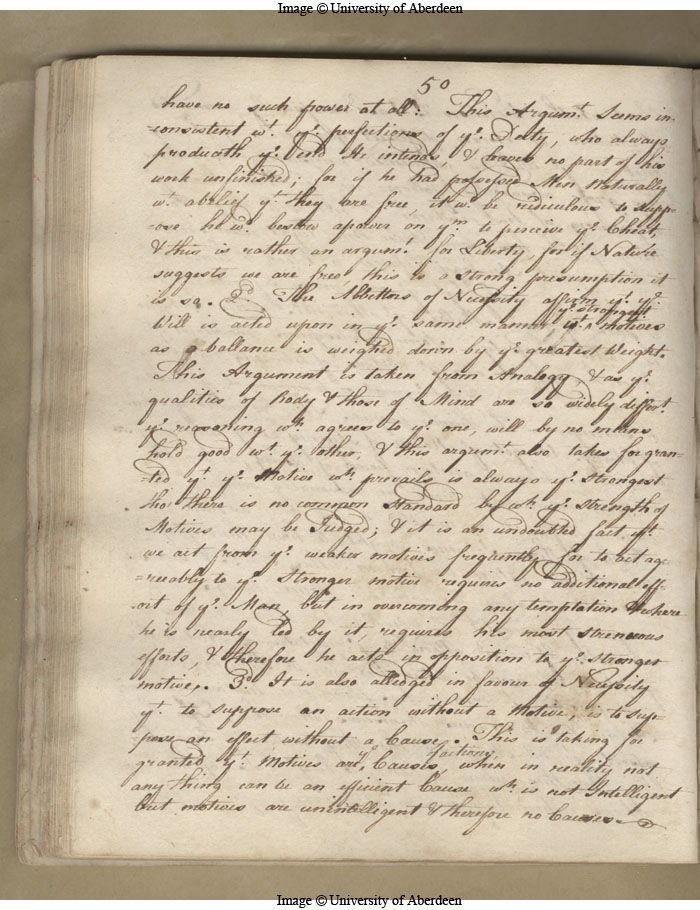 Image © University of Aberdeen
50
have no such power at all: This Argumt. seems in-
=consistent wt. ye. perfections of ye. Deity, who always
produceth ye. end He intends, & leaves no part of his
work unfinished; for if he had possessed Men naturally
wt. a belief yt. they are free, it wd. be ridiculous to supp-
=ose he wd. bestow a power on ym. to perceive ye. Cheat,
& this is rather an argumt. for Liberty, for if Nature
suggests we are free, this is a strong presumption it
is so. 2d. The Abbettors of Necessity affirm yt. ye.
Will is acted upon in ye. same manner wt. ye. strongest motives
as a ballance is weighed down by ye. greatest Weight.
This Argument is taken from Analogy, & as ye.
qualities of Body & those of Mind are so widely differt.
ye. reasoning wh. agrees to ye. one, will by no means
hold good wt. ye. other, & this argumt. also takes for gran-
=ted yt. ye. Motive wh. prevails is always ye. strongest
tho' there is no common Standard by wh. ye. strength of
Motives may be Judged; & it is an undoubted fact yt.
we act from ye. weaker motives frequently, for to act ag-
=reeably to ye. stronger motive requires no additional eff-
ort of ye. Man, but in overcoming any temptation & where
he is nearly led by it, requires his most strenuous
efforts, & therefore he acts in opposition to ye. stronger
motive. 3d. It is also alledged in favour of Necessity
yt. to suppose an action without a Motive, is to sup-
pose an effect without a Cause. This is taking for
granted yt. Motives are ye. Causes of actions, when in reality not
any thing can be an efficient Cause wh. is not Intelligent
but motives are unintelligent & therefore no Causes.
Image © University of Aberdeen